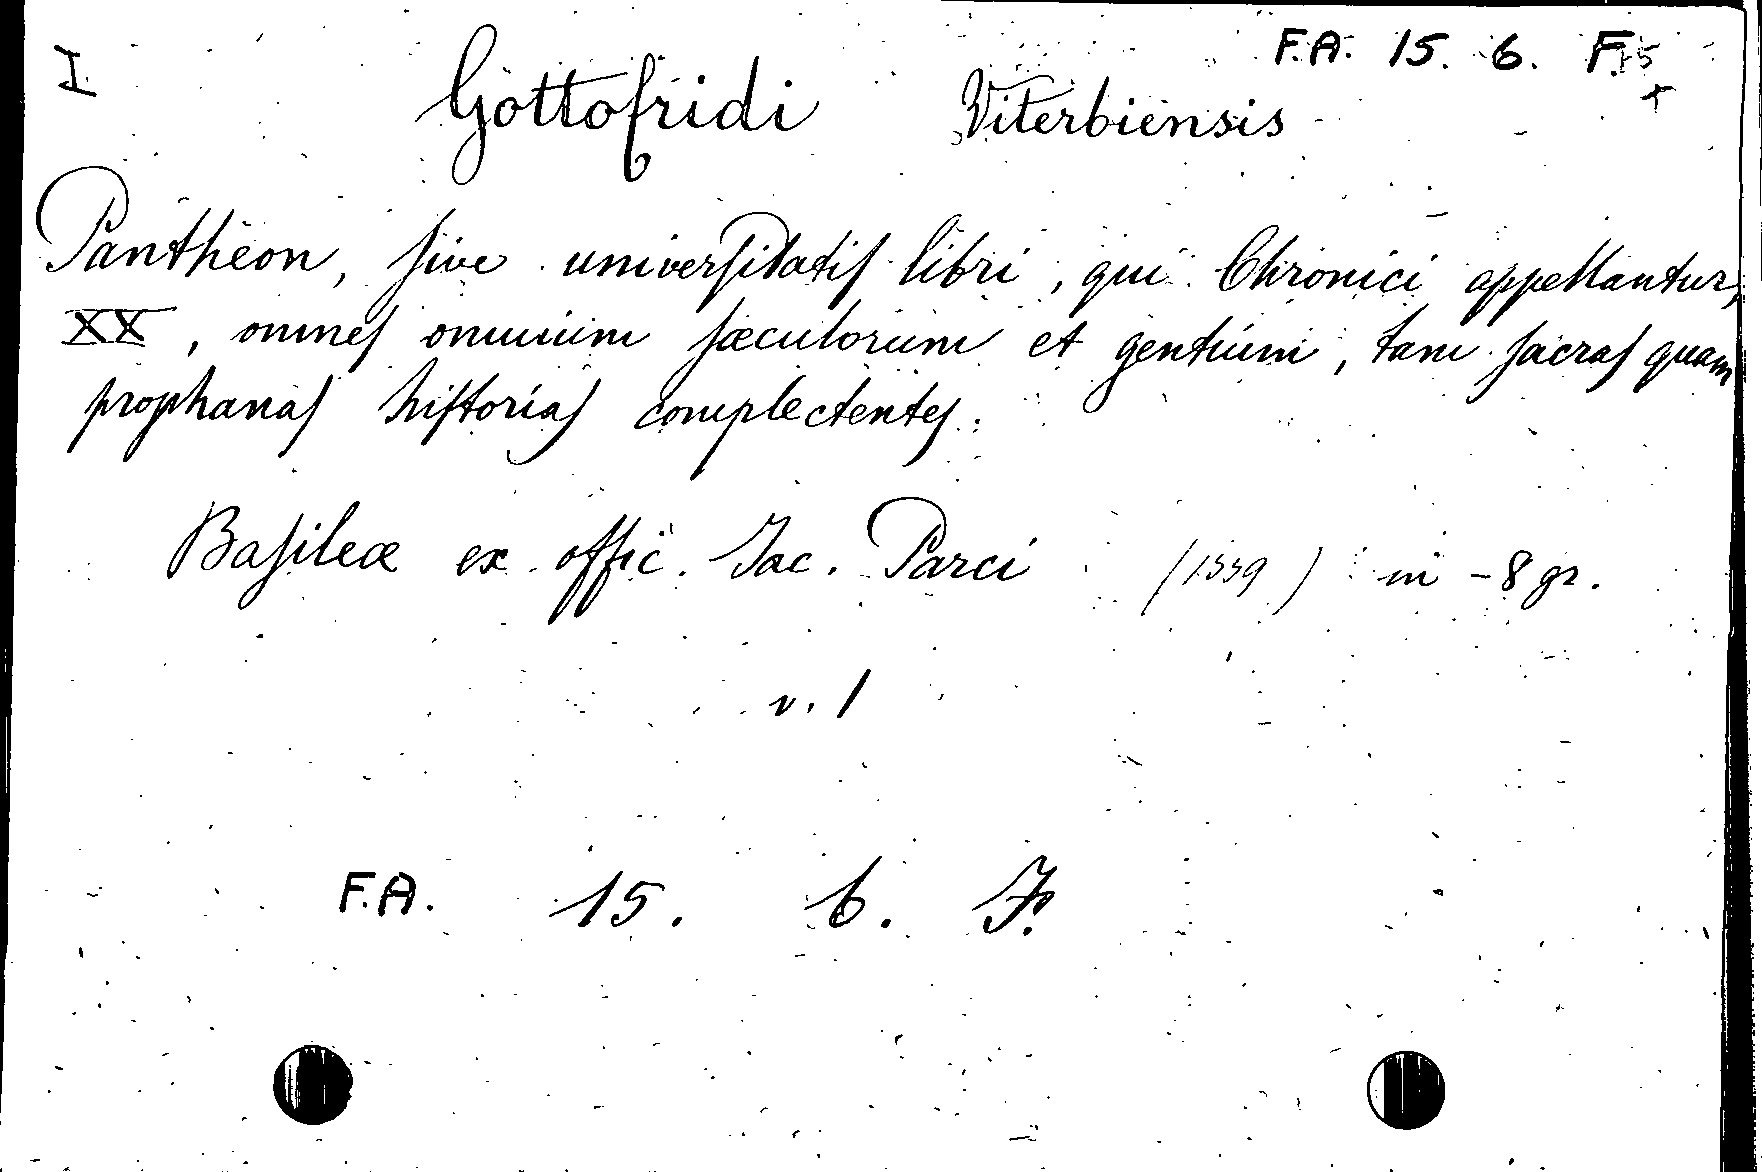 I
F.A. 15. 6. F.
Gottofridi Viterbiensis
Pantheon, ſive univerſitatiſ libri, qui Chronici appellantur,
XX, omneſ omnium ſæculorum et gentium, tam ſacraſ quam
prophanaſ hiſtoriaſ complectenteſ.
Baſileæ ex offic. Jac. Parci (1559) in-8 gr.
v. 1
F.A. 15. 6. F.